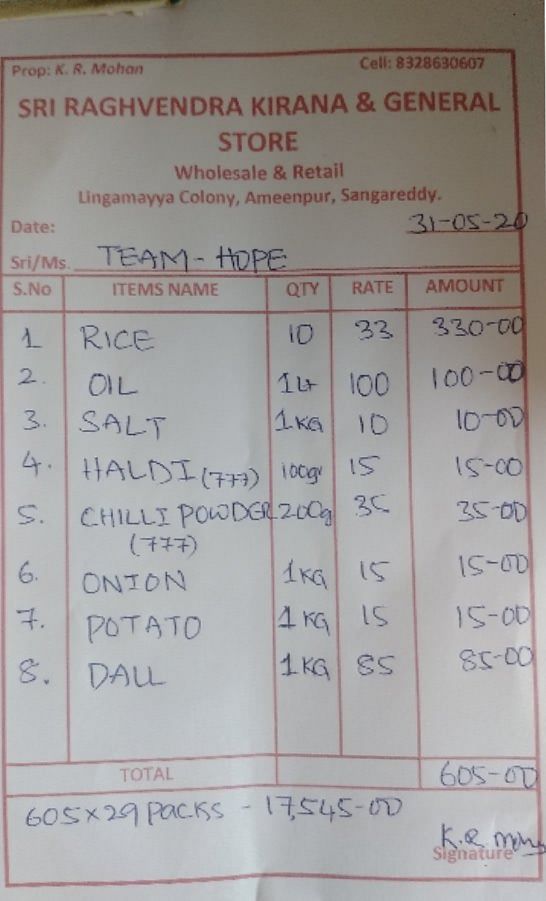 Prop: K. R. Mohan Cell: 8328630607
SRI RAGHVENDRA KIRANA & GENERAL
STORE
Wholesale & Retail
Lingamayya Colony, Ameenpur, Sangareddy.
Date: 31-05-20
Sri/Ms. TEAM-HOPE
S.No ITEMS NAME QTY RATE AMOUNT
1 RICE 10 33 330-00
2. OIL 1Lt 100 100-00
3. SALT 1KG 10 10-00
4. HALDI (777) 100gr 15 15-00
5. CHILLI POWDER 200g 35 35-00
(777)
6. ONION 1KG 15 15-00
7. POTATO 1KG 15 15-00
8. DALL 1KG 85 85-00
TOTAL 605-00
605x29 Packs - 17,545-00
K.R Mohan
Signature